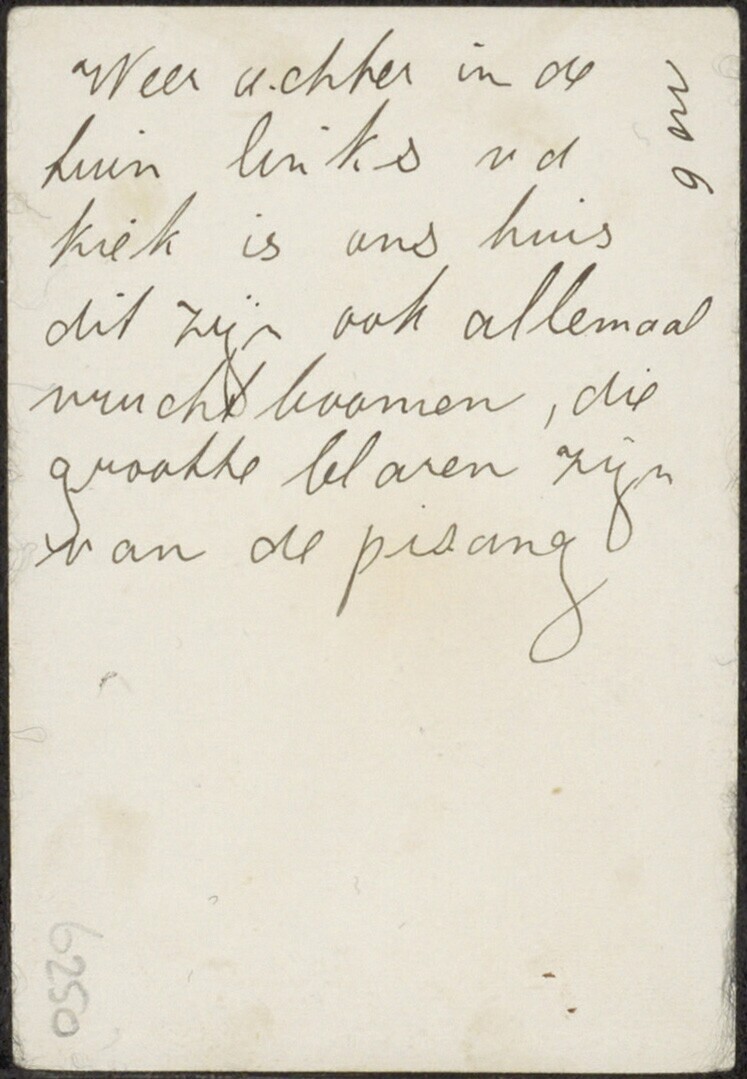 Weer achter in de
tuin links v d
kiek is ons huis
dit zijn ook allemaal
vruchtboomen, die
grootte blaren zijn
van de pisang
no 6
6250